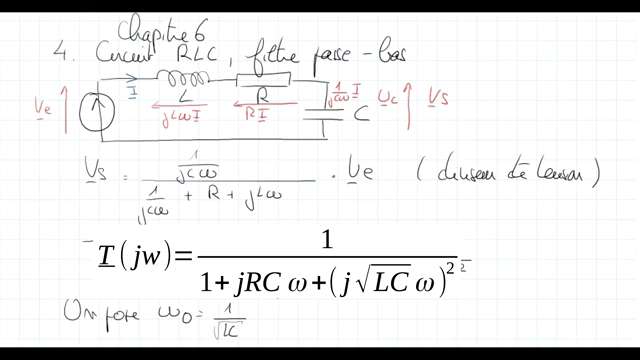 Chapitre 6
4. Circuit RLC, filtre passe-bas
I L R 1/jCω I Uc Vs
Ve jLωI RI C
Vs = (1/jCω) / (1/jCω + R + jLω) · Ve (diviseur de tension)
T(jw)= 1 / (1+jRCω+(j√LCω)²)
On pose ω0 = 1/√LC